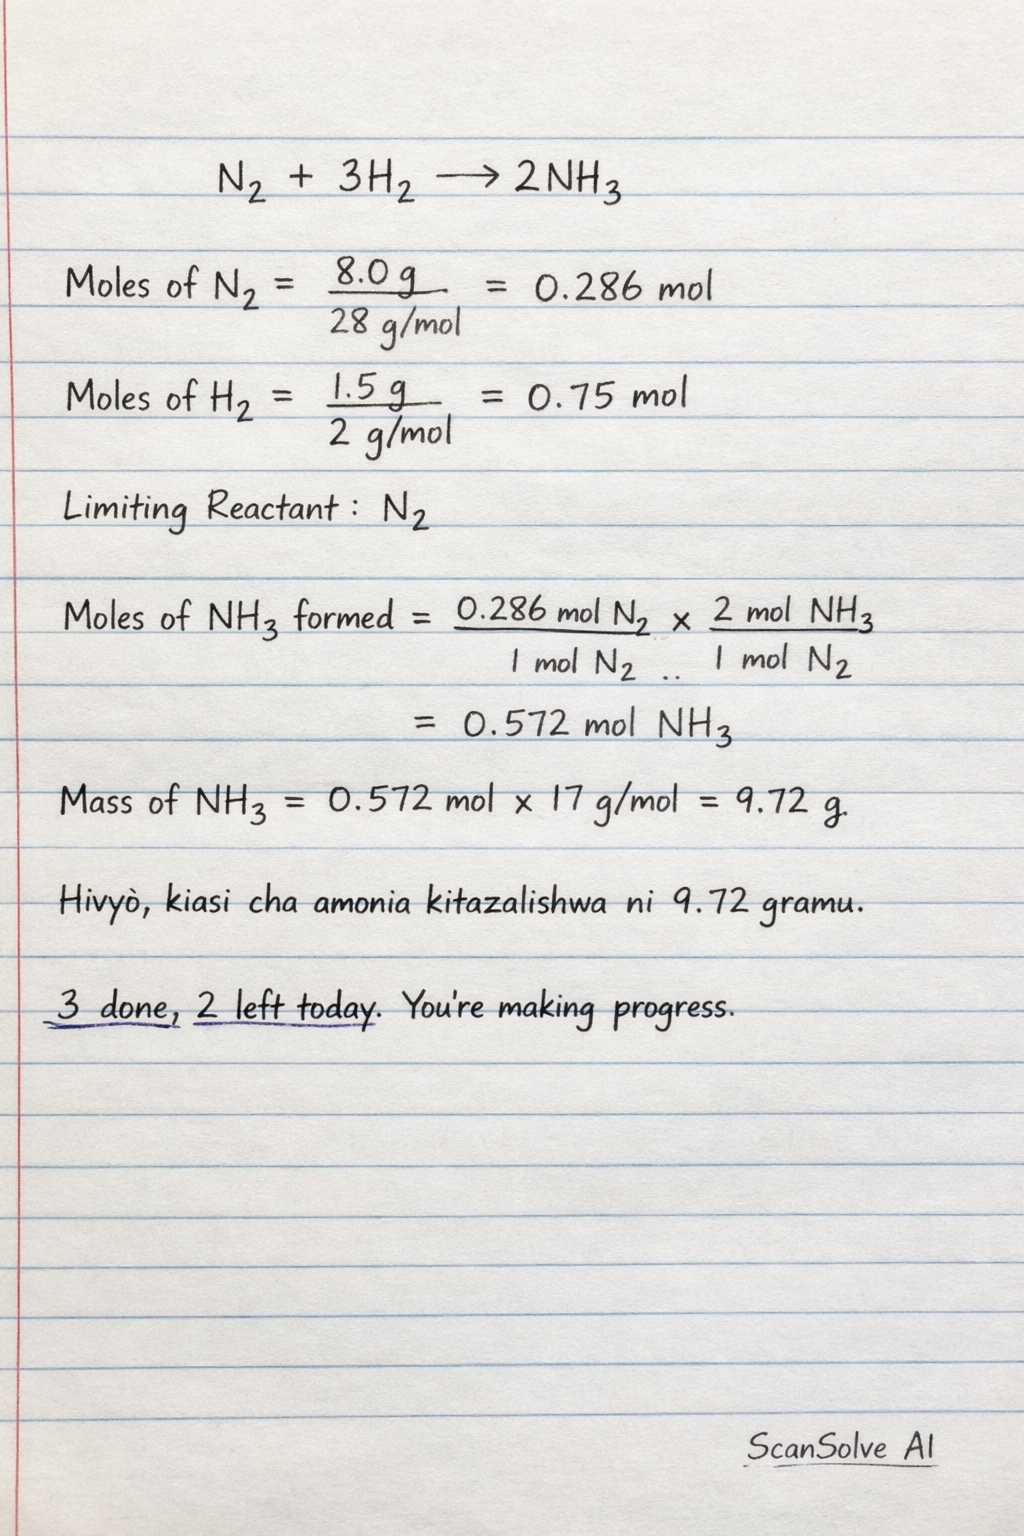 N₂ + 3H₂ → 2NH₃
Moles of N₂ = 8.0 g / 28 g/mol = 0.286 mol
Moles of H₂ = 1.5 g / 2 g/mol = 0.75 mol
Limiting Reactant : N₂
Moles of NH₃ formed = 0.286 mol N₂ / 1 mol N₂ .. × 2 mol NH₃ / 1 mol N₂
= 0.572 mol NH₃
Mass of NH₃ = 0.572 mol × 17 g/mol = 9.72 g.
Hivyò, kiasi cha amonia kitazalishwa ni 9.72 gramu.
3 done, 2 left today. You're making progress.
ScanSolve AI